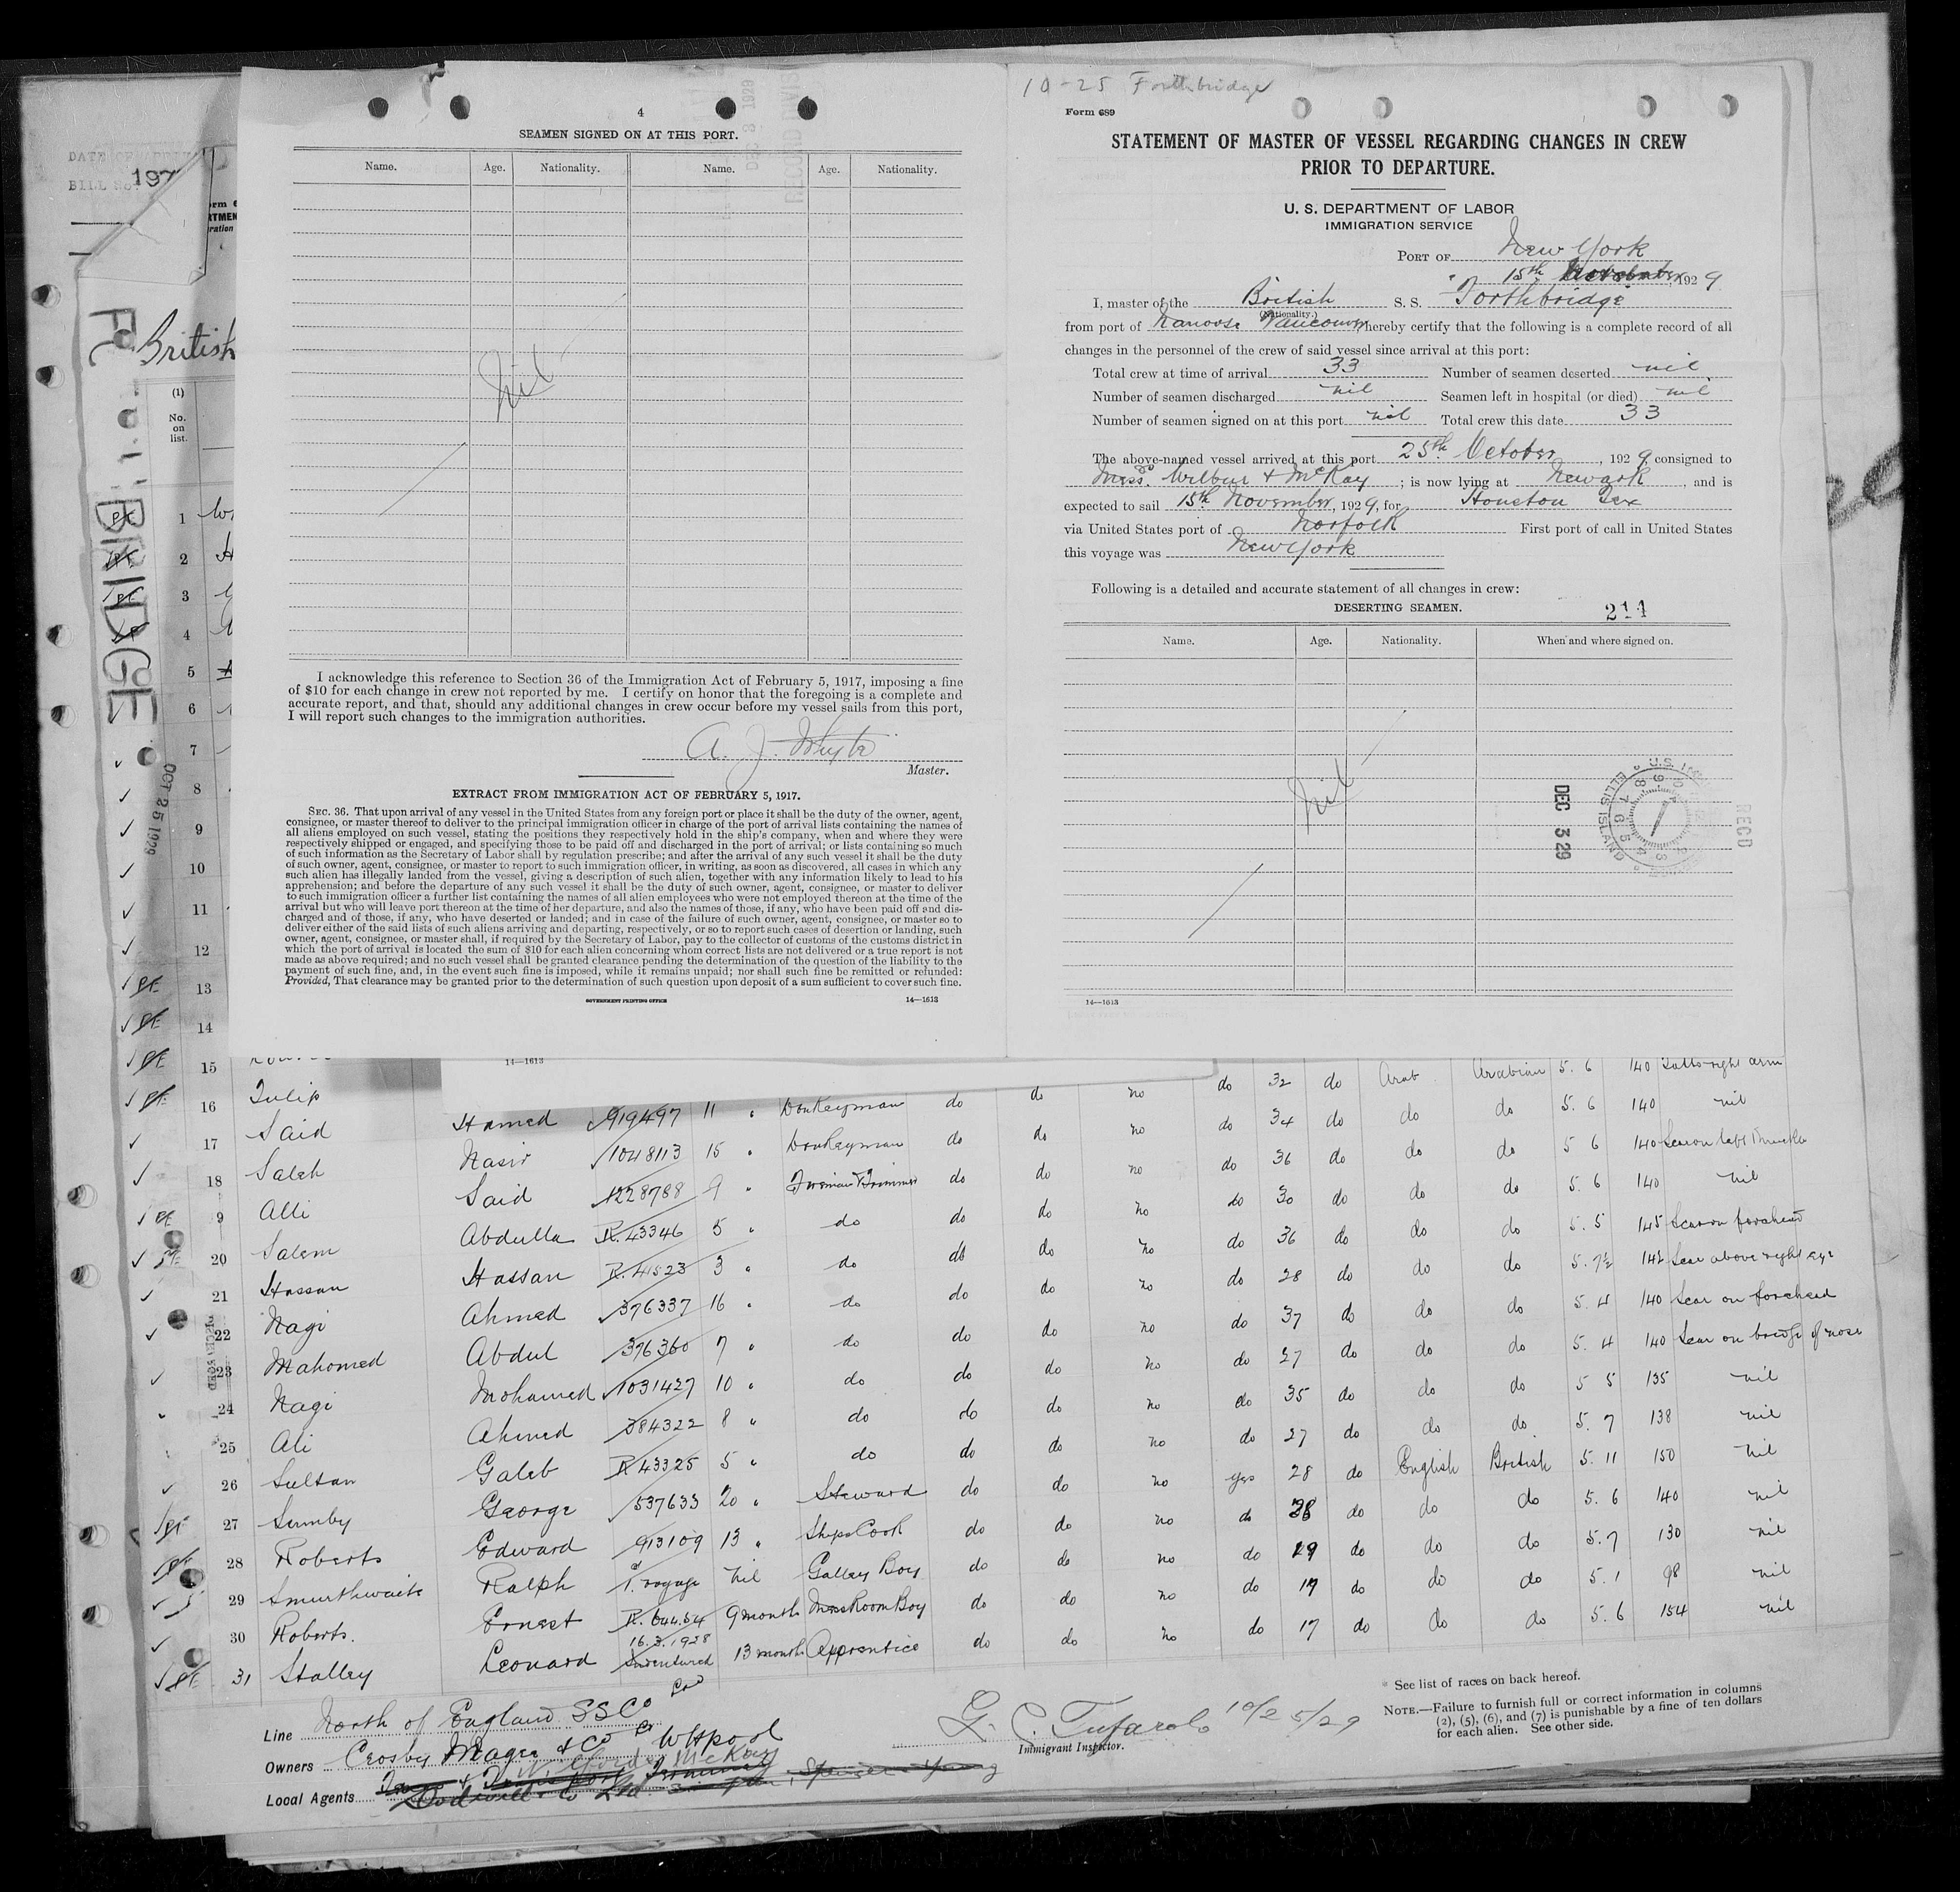 4
SEAMEN SIGNED ON AT THIS PORT.
Name. Age. Nationality. Name. Age. Nationality.
Nil
I acknowledge this reference to Section 36 of the Immigration Act of February 5, 1917, imposing a fine
of $10 for each change in crew not reported by me. I certify on honor that the foregoing is a complete and
accurate report, and that, should any additional changes in crew occur before my vessel sails from this port,
I will report such changes to the immigration authorities.
A. J. Whyte
Master.
EXTRACT FROM IMMIGRATION ACT OF FEBRUARY 5, 1917.
SEC. 36. That upon arrival of any vessel in the United States from any foreign port or place it shall be the duty of the owner, agent,
consignee, or master thereof to deliver to the principal immigration officer in charge of the port of arrival lists containing the names of
all aliens employed on such vessel, stating the positions they respectively hold in the ship's company, when and where they were
respectively shipped or engaged, and specifying those to be paid off and discharged in the port of arrival; or lists containing so much
of such information as the Secretary of Labor shall by regulation prescribe; and after the arrival of any such vessel it shall be the duty
of such owner, agent, consignee, or master to report to such immigration officer, in writing, as soon as discovered, all cases in which any
such alien has illegally landed from the vessel, giving a description of such alien, together with any information likely to lead to his
apprehension; and before the departure of any such vessel it shall be the duty of such owner, agent, consignee, or master to deliver
to such immigration officer a further list containing the names of all alien employees who were not employed thereon at the time of the
arrival but who will leave port thereon at the time of her departure, and also the names of those, if any, who have been paid off and dis-
charged and of those, if any, who have deserted or landed; and in case of the failure of such owner, agent, consignee, or master so to
deliver either of the said lists of such aliens arriving and departing, respectively, or so to report such cases of desertion or landing, such
owner, agent, consignee, or master shall, if required by the Secretary of Labor, pay to the collector of customs of the customs district in
which the port of arrival is located the sum of $10 for each alien concerning whom correct lists are not delivered or a true report is not
made as above required; and no such vessel shall be granted clearance pending the determination of the question of the liability to the
payment of such fine, and, in the event such fine is imposed, while it remains unpaid; nor shall such fine be remitted or refunded:
Provided, That clearance may be granted prior to the determination of such question upon deposit of a sum sufficient to cover such fine.
GOVERNMENT PRINTING OFFICE 14—1613
10-25 Forthbridge
Form 689
STATEMENT OF MASTER OF VESSEL REGARDING CHANGES IN CREW
PRIOR TO DEPARTURE.
U. S. DEPARTMENT OF LABOR
IMMIGRATION SERVICE
PORT OF New York
15th November, 1929
I, master of the British S. S. Forthbridge
(Nationality.)
from port of Nanoose Vancouver hereby certify that the following is a complete record of all
changes in the personnel of the crew of said vessel since arrival at this port:
Total crew at time of arrival 33 Number of seamen deserted nil
Number of seamen discharged nil Seamen left in hospital (or died) nil
Number of seamen signed on at this port nil Total crew this date 33
The above-named vessel arrived at this port 25th October, 1929, consigned to
Messrs. Wilbur & McKay; is now lying at Newark, and is
expected to sail 15th November, 1929, for Houston Tex
via United States port of Norfolk First port of call in United States
this voyage was New York
Following is a detailed and accurate statement of all changes in crew:
DESERTING SEAMEN. 214
Name. Age. Nationality. When and where signed on.
Nil
DEC 3 29
RECD
ELLIS ISLAND
14—1613
197
British
BRIDGE
(1)
No.
on
list.
OCT 25 1929
1
2
3
4
5
6
7
8
9
10
11
12
13
14
15
14—1613
do 32 do Arab Arabian 5. 6 140
16 Tulip Hamed 919497 11 " Donkeyman do do no do 34 do do do 5. 6 140 nil
17 Said Nasir 1048113 15 " Donkeyman do do no do 36 do do do 5 6 140
18 Saleh Said 1228788 9 " Fireman Trimmer do do no do 30 do do do 5. 6 140 nil
9 Alli Abdulla R. 43346 5 " do do do no do 36 do do do 5. 5 145 Scar on forehead
20 Salem Hassan R. 41523 3 " do do do no do 28 do do do 5. 7½ 142 Scar above right eye
21 Hassan Ahmed 376337 16 " do do do no do 37 do do do 5. 4 140 Scar on forehead
22 Nagi Abdul 376360 7 " do do do no do 27 do do do 5. 4 140 Scar on bridge of nose
23 Mahomed Mohamed 1031427 10 " do do do no do 35 do do do 5 5 135 nil
24 Nagi Ahmed 384322 8 " do do do no do 27 do do do 5. 7 138 nil
25 Ali Galeb R 43325 5 " do do do no yes 28 do English British 5. 11 150 nil
26 Sultan George 537633 20 " Steward do do no do 38 do do do 5. 6 140 nil
27 Sumby Edward 913109 13 " Ships Cook do do no do 29 do do do 5. 7 130 nil
28 Roberts Ralph 1. voyage nil Galley Boy do do no do 17 do do do 5. 1 98 nil
29 Smurthwaite Ernest R. 64454 9 months Mess Room Boy do do no do 17 do do do 5. 6 154 nil
30 Roberts. Leonard 16.3.1928 Indentured 13 months Apprentice do do no
31 Stalley
Line North of England SSCo Ltd
Owners Crosby Magee & Co W Hpool
Local Agents Dodwell & Co Ltd
G. C. Tufarolo 10/25/29
Immigrant Inspector.
* See list of races on back hereof.
NOTE.—Failure to furnish full or correct information in columns
(2), (5), (6), and (7) is punishable by a fine of ten dollars
for each alien. See other side.